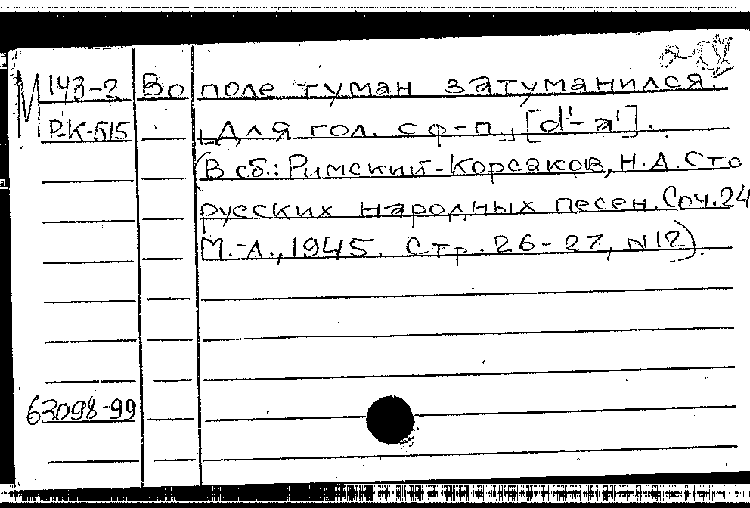 М 143-2 Во поле туман затуманился.
РК-515 [Для гол. с ф-п.] [d'-a'].
(В сб.: Римский-Корсаков, Н.А. Сто
русских народных песен. Соч. 24
М.-Л., 1945. Стр. 26-27, N12).
63098-99